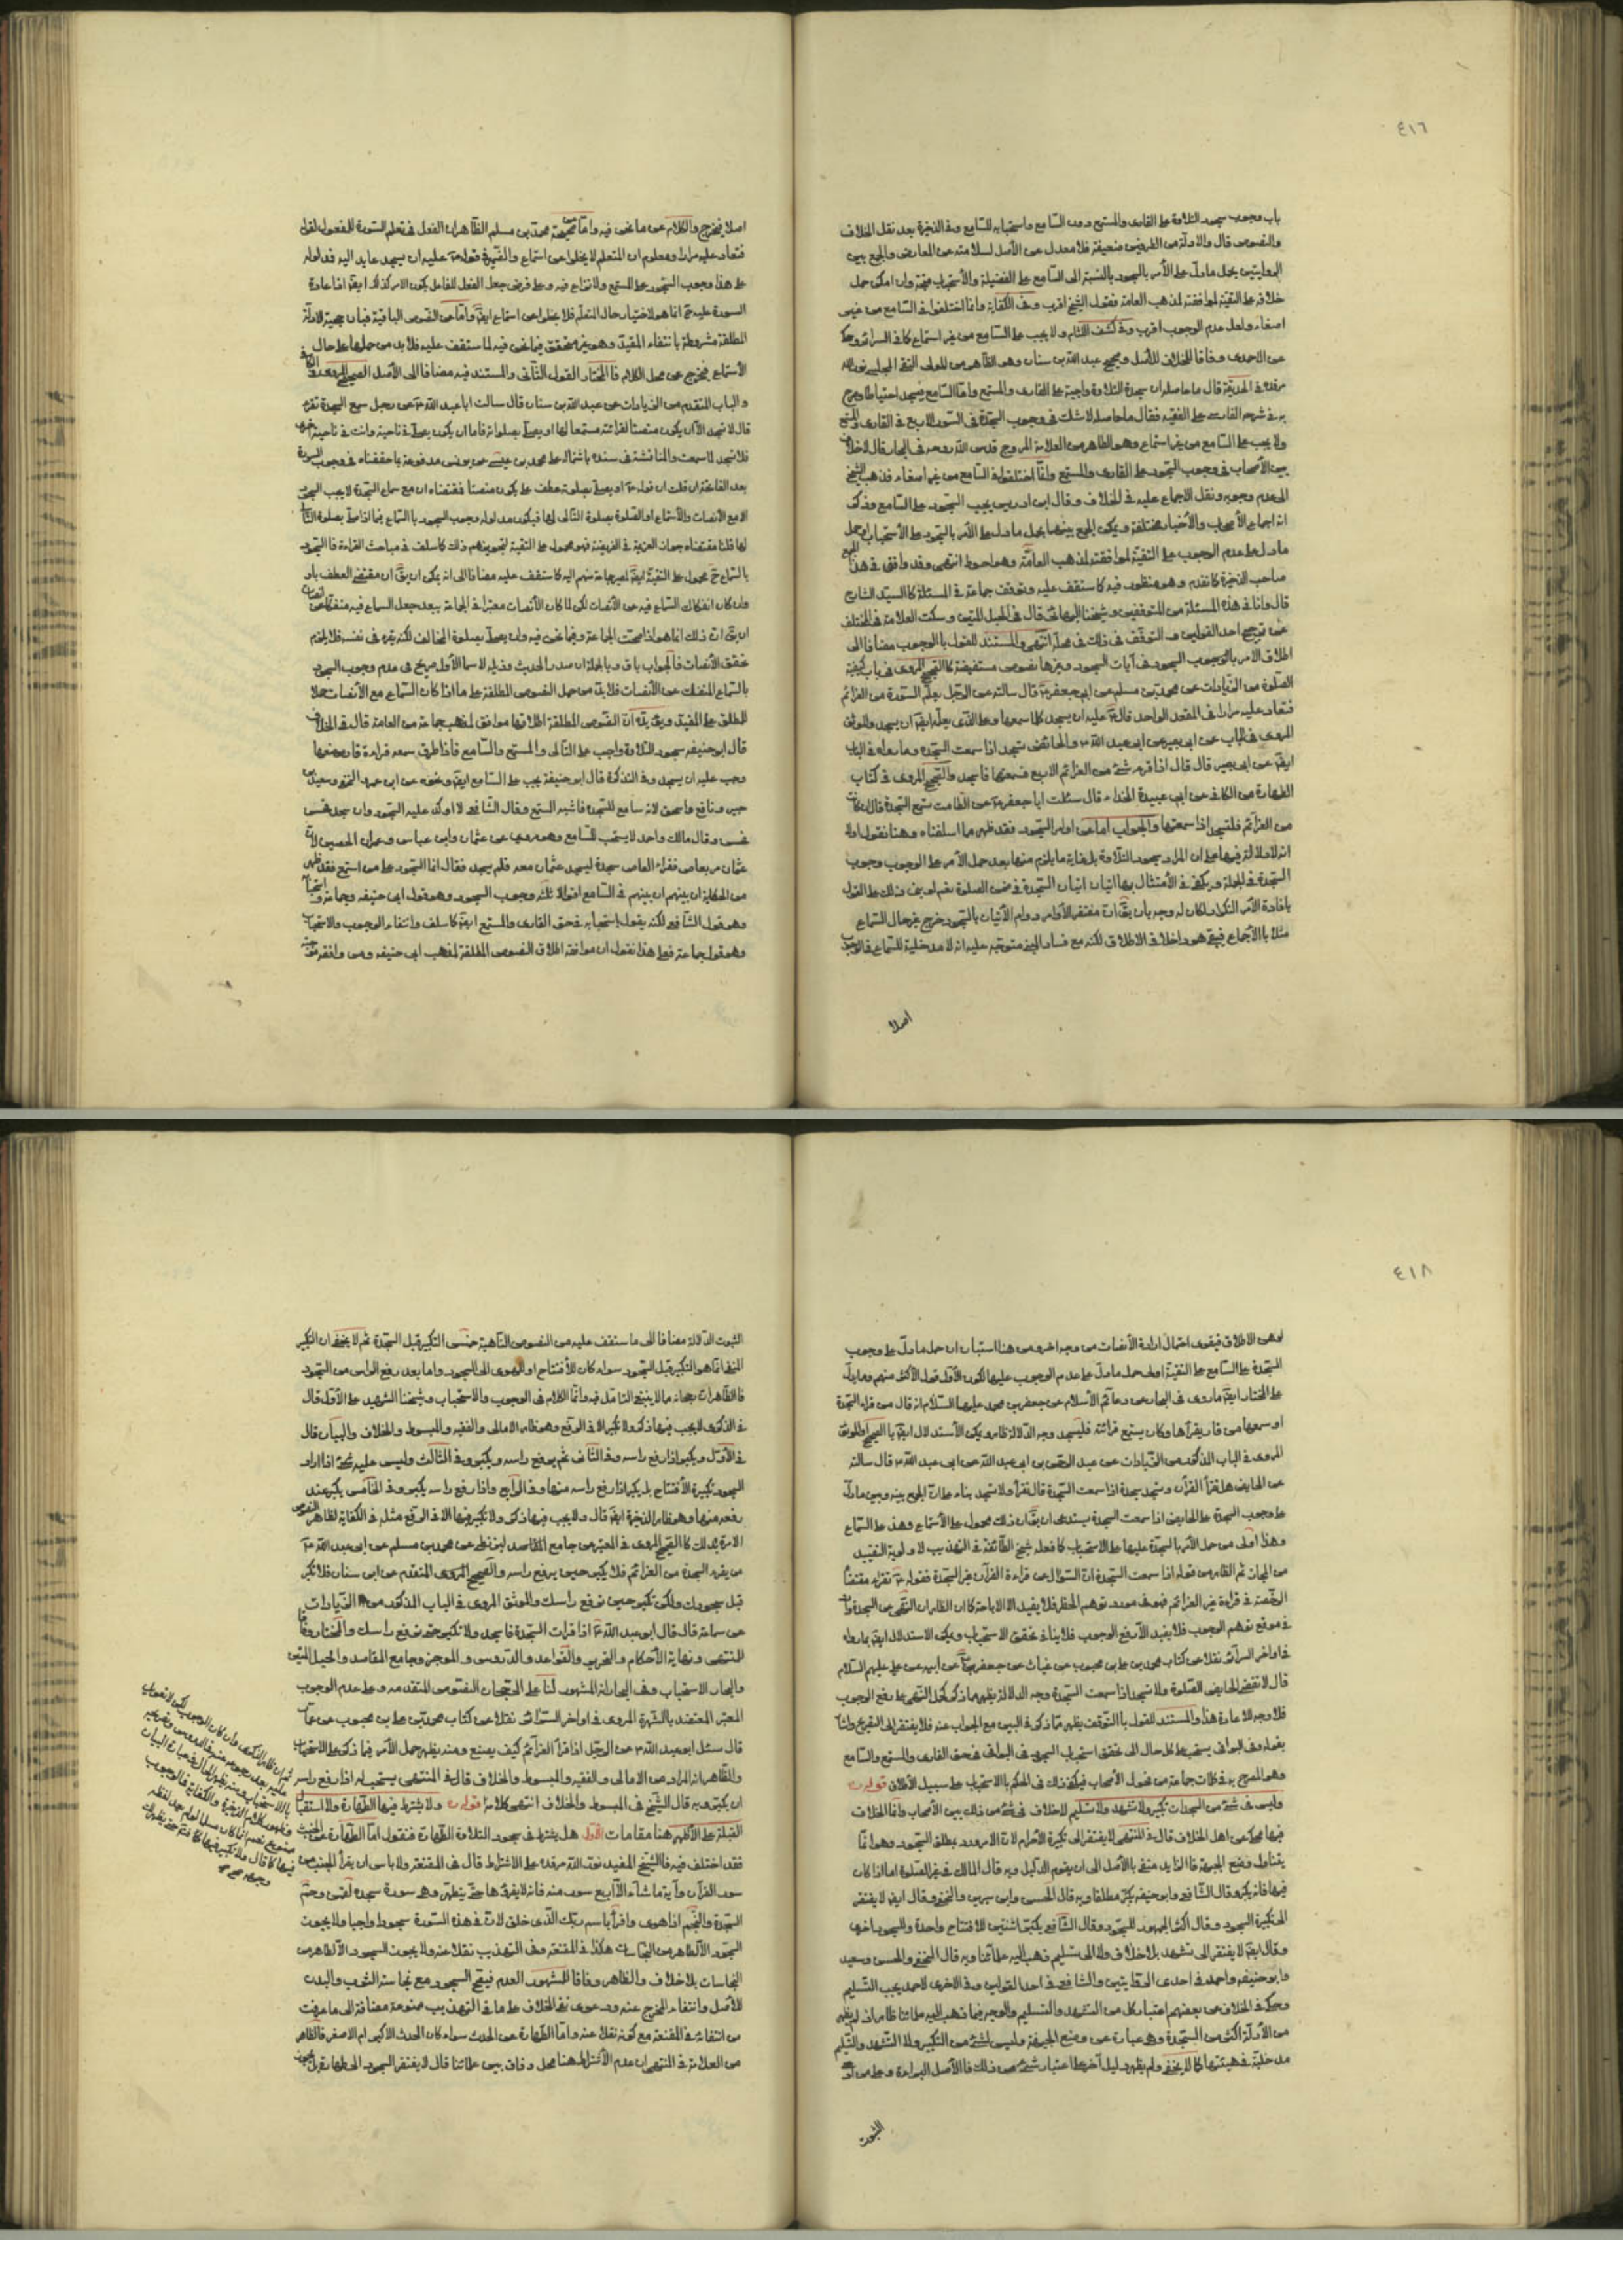 ٤١٦
باب وجوب سجود التلاوة على القارى والمستمع دون السامع واستحبابه للسامع وفى الذخيرة بعد نقل الخلاف
والنصوص قال والادلة من الطرفين ضعيفة فلا معدل عن الاصل لسلامته عن المعارض والجمع بين
الروايتين بحمل ما دل على الامر بالسجود بالنسبة الى السامع على الفضيلة والاستحباب متجه وان امكن حمل
خلافه على التقية لموافقته لمذهب العامة فقول الشيخ اقرب وفى الكفاية وانما اختلفوا فى السامع من غير
اصغاء ولعل عدم الوجوب اقرب وفى كشف اللثام ولا يجب على السامع من غير استماع كما فى السرائر وحكى
عن الاحمدى وفاقا للخلاف للاصل وصحيح عبد الله بن سنان وهو الظاهر من المولى التقى المجلسى نور الله
مرقده فى الحديقة قال ما حاصله ان سجدة التلاوة واجبة على القارى والمستمع واما السامع فيسجد احتياطا وصرح
به فى شرحه الفارسى على الفقيه فقال ما حاصله لا شك فى وجوب السجدة فى السور الاربع فى القارى والمستمع
ولا يجب على السامع من غير استماع وهو الظاهر من العلامة المروج قدس الله روحه فى البحار قال لا خلاف
بين الاصحاب فى وجوب السجود على القارى والمستمع وانما اختلفوا فى السامع من غير اصغاء فذهب الشيخ
الى عدم وجوبه ونقل الاجماع عليه فى الخلاف وقال ابن ادريس يجب السجود على السامع وذكر
انه اجماع الاصحاب والاخبار مختلفة ويمكن الجمع بينها بحمل ما دل على الامر بالسجود على الاستحباب او حمل
ما دل على عدم الوجوب على التقية لموافقته لمذهب العامة وهو احوط انتهى وقد وافق فى هذا الجمع
صاحب الذخيرة كما تقدم وهو منظور فيه كما ستقف عليه وتوقف جماعة فى المسئلة كالسيد الشارح
قال وانا فى هذه المسئلة من المتوقفين وشيخنا البهائى قال فى الحبل المتين وسكت العلامة فى المختلف
عن ترجيح احد القولين والتوقف فى ذلك فى محله انتهى والمستند للقول بالوجوب مضافا الى
اطلاق الامر بالوجوب السجود فى آيات السجود وغيرها نصوص مستفيضة كالصحيح المروى فى باب كيفية
الصلوة من الزيادات عن محمد بن مسلم عن ابى جعفر ع قال سالته عن الرجل يعلم السورة من العزائم
فتعاد عليه مرارا فى المقعد الواحد قال ع عليه ان يسجد كلما سمعها وعلى الذى يعلمه ايضا ان يسجد والموثق
المروى فى الباب عن ابى بصير عن ابى عبد الله ع والحائض تسجد اذا سمعت السجدة وما رواه فى الباب
ايضا عن ابى بصير قال قال اذا قرء شئ من العزائم الاربع فسمعتها فاسجد والصحيح المروى فى كتاب
الطهارة من الكافى عن ابى عبيدة الحذاء قال سئلت ابا جعفر ع عن الطامث تسمع السجدة قال ان كانت
من العزائم فلتسجد اذا سمعتها والجواب اما عن اوامر السجود فقد ظهر مما اسلفناه وهنا نقول اولا
انه لا دلالة فيها على ان المراد سجود التلاوة بل غاية ما يلزم منها بعد حمل الامر على الوجوب وجوب
السجدة فى الجملة ويكفى فى الامتثال بها اتيان السجدة فى ضمن الصلوة نعم لو بنى ذلك على القول
بافادة الامر التكرار لكان له وجه بان يقال ان مقتضى الاوامر دوام الاتيان بالسجود خرج غير حال السماع
مثلا بالاجماع فبقى هو داخلا فى الاطلاق لكنه مع فساد المبنى متوجه عليه انه لا مدخلية للسماع فالوجوب
اصلا
اصلا فيخرج والكلام عن ما نحن فيه واما عن صحيحة محمد بن مسلم الظاهر ان الفعل فى تعلم السورة للمفعول لقوله
فتعاد عليه مرارا ومعلوم ان المتعلم لا يخلوا عن استماع والضمير فى قوله ع عليه ان يسجد عايد اليه فمدلوله
على هذا وجوب السجود على المستمع ولا نزاع فيه وعلى فرض جعل الفعل للفاعل يكون الامر كذلك ايضا اذ اعادة
السورة عليه ح انما هو لاختيار حال المتعلم فلا يخلوا عن استماع ايضا واما عن النصوص الباقية فبان حجية الادلة
المطلقة مشروطة بانتفاء المقيد وهو غير متحقق فيما نحن فيه لما ستقف عليه فلا بد من حملها على حال
الاستماع فيخرج عن محل الكلام فالمختار القول الثانى والمستند فيه مضافا الى الاصل الصحيح المروى فى الكافى
والباب المتقدم من الزيادات عن عبد الله بن سنان قال سالت ابا عبد الله ع عن رجل سمع السجدة تقرء
قال لا تسجد الا ان يكون منصتا لقرائته مستمعا لها او يصلى بصلواته فاما ان يكون يصلى فى ناحية وانت فى ناحية اخرى
فلا تسجد لما سمعت والمناقشة فى سنده باشتماله على محمد بن عيسى عن يونس مدفوعة بما حققناه فى وجوب السورة
بعد الفاتحة ان قلت ان قوله ع او يصلى بصلوته عطف على يكون منصتا فمقتضاه ان مع سماع السجدة لا يجب السجود
الا مع الانصات والاستماع او الصلوة بصلوة التالى لها فيكون مدلوله وجوب السجود بالسماع فيما اذا صلى بصلوة التالى
لها قلنا مقتضاه جواز العزيمة فى الفريضة فهو محمول على التقية لتجويزهم ذلك كما سلف فى مباحث القراءة فالسجود
بالسماع ح محمول على التقية ايضا لمصير جماعة منهم اليه كما ستقف عليه مضافا الى انه يمكن ان يقال ان مقتضى العطف باو
وان كان انفكاك السماع فيه عن الانصات لكن لما كان الانصات معتبرا فى الجماعة يبعد جعل السماع فيه منفكا عن الانصات
ان يق ان ذلك انما هو اذا صحت الجماعة وفيما نحن فيه وان يصلى بصلوة المخالف لكنه يقرء فى نفسه فلا يلزم
تحقق الانصات فالجواب باق وبالجملة ان صدر الحديث وذيله لا سيما الاول صريح فى عدم وجوب السجود
بالسماع المنفك عن الانصات فلا بد من حمل النصوص المطلقة على ما اذا كان السماع مع الانصات حملا
للمطلق على المقيد ويؤيده ان النصوص المطلقة اطلاقها موافق لمذهب جماعة من العامة قال فى الخلاف
قال ابو حنيفه سجود التلاوة واجب على التالى والمستمع والسامع فاذا طرق سمعه قراءة قارى موضعها
وجب عليه ان يسجد وفى التذكرة قال ابو حنيفة يجب على السامع ايضا ونحوه عن ابن عمر والنخعى وسعيد بن
جبير ونافع واسحق لانه سامع للسجدة فاشبه المستمع وقال الشافعى لا اؤكد عليه السجود وان سجد فحسن
وقال مالك واحمد لا يستحب للسامع وهو مروى عن عثمان وابن عباس وعمران الحصين لان
عثمان مر بقاص فقراء القاص سجدة ليسجد عثمان معه فلم يسجد فقال انما السجود على من استمع فقد ظهر
من الحكاية ان بينهم فى السامع اقوالا ثلثة وجوب السجود وهو قول ابى حنيفه وجماعة واستحبابه
وهو قول الشافعى لكنه يقول باستحبابه فى حق القارى والمستمع ايضا كما سلف وانتفاء الوجوب والاستحباب
وهو قول جماعة فعلى هذا نقول ان موافقة اطلاق النصوص المطلقة لمذهب ابى حنيفه ومن وافقه
٤١٨
السجدة على السامع على التقية اولى من حمل ما دل على عدم الوجوب عليها لكون الاول قول الاكثر منهم ومما يدل
على المختار ايضا ما روى فى البحار عن دعائم الاسلام عن جعفر بن محمد عليهما السلام انه قال من قراء السجدة
او سمعها من قارى يقرأها وكان يستمع قرائته فليسجد وجه الدلالة ظاهر ويمكن الاستدلال ايضا بالصحيح او الموثق
المروى فى الباب المذكور من الزيادات عن عبد الرحمن بن ابى عبد الله عن ابى عبد الله ع قال سالته
عن الحايض هل تقرأ القرآن وتسجد سجدة اذا سمعت السجدة قال تقرأ ولا تسجد بناء على ان الجمع بينه وبين ما دل
على وجوب السجدة على الحايض اذا سمعت السجدة يستدعى ان يقال ان ذلك محمول على الاستماع وهذا على السماع
وهذا اولى من حمل الامر بالسجدة عليها على الاستحباب كما فعله شيخ الطائفة فى التهذيب لاولوية التقييد
من المجاز ثم الظاهر من قوله اذا سمعت السجدة ان السؤال عن قراءة القرآن غير السجدة فقوله ع تقراء مقتضاه
الرخصة فى قراءة غير العزائم فهو فى مورد توهم الحظر فلا يفيد الا الاباحة كما ان الظاهر ان النهى عن السجدة وارد
فى موقع توهم الوجوب فلا يفيد الا رفع الوجوب فلا ينافى تحقق الاستحباب ويمكن الاستدلال ايضا بما رواه
فى اواخر السرائر نقلا عن كتاب محمد بن على بن محبوب عن غياث عن جعفر عن ابيه عن على عليهم السلام
قال لا تقضى الحايض الصلوة ولا تسجد اذا سمعت السجدة وجه الدلالة يظهر مما ذكر لحمل النهى على رفع الوجوب
فلا وجه للاعادة هذا والمستند للقول بالتوقف يظهر مما ذكر فى البين مع الجواب عنه فلا يفتقر الى التصريح
وهو المصرح به فى كلمات جماعة من فحول الاصحاب فيكفى ذلك فى الحكم بالاستحباب على سبيل الاطلاق قوله ره
وليس فى شئ من السجدات تكبير ولا تشهد ولا تسليم لا خلاف فى شئ من ذلك بين الاصحاب وانما الخلاف
فيها محكى عن اهل الخلاف قال فى المنتهى لا يفتقر الى تكبيرة الاحرام لان الامر ورد بمطلق السجود وهو انما
يتناول وضع الجبهة فالزايد منفى بالاصل الى ان يقوم الدليل وبه قال المالك فى غير الصلوة اما اذا كان
فيها فانه يكبر وقال الشافعى وابو حنيفه يكبر مطلقا وبه قال الحسن وابن سيرين والنخعى وقال ايضا لا يفتقر
الى تكبيرة السجود وقال اكثر الجمهور للسجود وقال الشافعى يكبر اثنتين للافتتاح واحدة وللسجود اخرى
وقال ايضا لا يفتقر الى تشهد بلا خلاف ولا الى تسليم ذهب اليه علمائنا وبه قال النخعى والحسن وسعيد
وابو حنيفه واحمد فى احدى الروايتين والشافعى فى احد القولين وفى الاخرى لاحمد يجب التسليم
وحكى فى الخلاف عن بعضهم اعتبار كل من التشهد والتسليم والوجه فيما ذهب اليه علمائنا ظاهر اذ لم يظهر
من الادلة اكثر من السجدة وهى عبارة عن وضع الجبهة وليس لشئ من التكبير ولا التشهد والتسليم
مدخلية فى هيئتها كما لا يخفى ولم يظهر دليل آخر على اعتبار شئ من ذلك فالاصل البراءة وعلى من ادعى
الثبوت
الثبوت الدلالة مضافا الى ما ستقف عليه من النصوص الناهية عن التكبير قبل السجدة ثم لا يخفى ان التكبير
المنفى انما هو التكبير قبل السجود سواء كان للافتتاح او للهوى الى السجود واما بعد رفع الراس من السجود
فالظاهر ان رجحانه مما لا ينبغى التامل فيه وانما الكلام فى الوجوب والاستحباب وشيخنا الشهيد على الاول قال
فى الذكرى لا يجب فيها ذكر ولا تكبير الا فى الرفع وهو ظاهر الامالى والفقيه والمبسوط والخلاف والبيان قال
فى الاول ويكبر اذا رفع راسه وفى الثانى ثم يرفع راسه ويكبر وفى الثالث وليس عليه شئ اذا اراد
السجود تكبيرة الافتتاح بل يكبر اذا رفع راسه منها وفى الرابع واذا رفع راسه يكبر وفى الخامس يكبر عند
رفعه منها وهو ظاهر الذخيرة ايضا قال ولا يجب فيها ذكر ولا تكبير فيها الا فى الرفع مثله فى الكفاية لظاهر النصوص
الامرة بذلك كالصحيح المروى فى المعتبر عن جامع البزنطى عن محمد بن مسلم عن ابى عبد الله ع
من يقرء السجدة من العزائم فلا يكبر حين يرفع راسه والصحيح المروى المتقدم عن ابن سنان فلا تكبر
قبل سجودك ولكن تكبر حين ترفع راسك والموثق المروى فى الباب المذكور من الزيادات
عن سماعة قال قال ابو عبد الله ع اذا قرات السجدة فاسجد ولا تكبر حتى ترفع راسك والمختار وفاقا
للمنتهى ونهاية الاحكام والتحرير والقواعد والدروس والموجز وجامع المقاصد والحبل المتين
والبحار الاستحباب وفى البحار انه المشهور لنا على الرجحان النصوص المتقدمة وعلى عدم الوجوب
المعتبر المعتضد بالشهرة المروى فى اواخر السرائر نقلا عن كتاب محمد بن على بن محبوب عن عمار
قال سئل ابو عبد الله ع عن الرجل اذا قرأ العزائم كيف يصنع ومنه يظهر حمل الامر فيما ذكر على الاستحباب
والظاهر انه المراد من الامالى والفقيه والمبسوط والخلاف قال فى المنتهى يستحب له اذا رفع راسه
ان يكبر وبه قال الشيخ فى المبسوط والخلاف انتهى كلامه قوله ره ولا يشترط فيها الطهارة ولا استقبال
القبلة على الاظهر هنا مقامات الاول هل يشترط فى سجود التلاوة الطهارة فنقول اما الطهارة عن الحدث
فقد اختلف فيه فالشيخ المفيد نور الله مرقده على الاشتراط قال فى المقنعة ولا باس ان يقرأ الجنب من
سور القرآن وآيه ما شاء الا اربع سور منه فانه لا يقرئها حتى يتطهر وهى سورة سجدة لقمن وحم
السجدة والنجم اذا هوى واقرأ باسم ربك الذى خلق لان فى هذه السورة سجودا واجبا ولا يجوز
السجود الا لطاهر من النجاسات هكذا فى المقنعة وفى التهذيب نقلا عنه ولا يجوز السجود الا لطاهر من
النجاسات بلا خلاف والظاهر وفاقا للمشهور العدم فيصح السجود مع نجاسة الثوب والبدن
للاصل وانتفاء المخرج عنه ودعوى نفى الخلاف على ما فى التهذيب ممنوعة مضافة الى ما عرفت
من انتفائه فى المقنعة مع كونه نقلا عنه واما الطهارة عن الحدث سواء كان الحدث الاكبر ام الاصغر فالظاهر
من العلامة فى المنتهى ان عدم الاشتراط هنا محل وفاق بين علمائنا قال لا يفتقر السجود الى طهارة